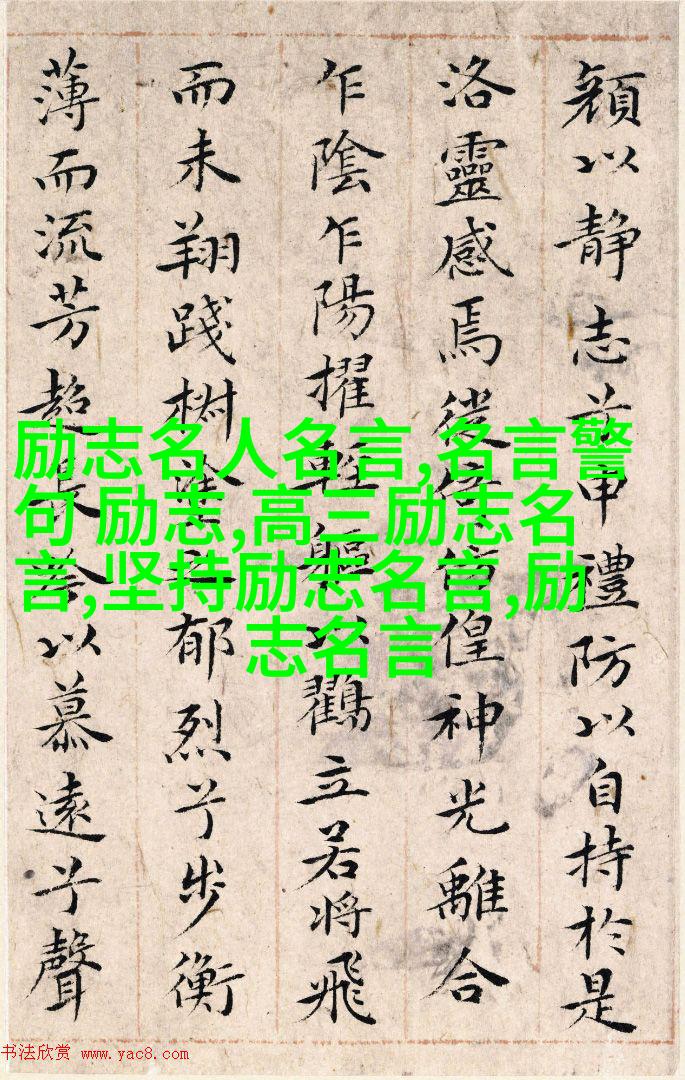 顔以静志兮申禮防以自持於是
洛靈感焉徙倚傍偟神光離合
乍陰乍陽擢輕軀以鶴立若將飛
而未翔踐椒塗之郁烈兮步衡
薄而流芳超長吟以慕遠兮聲
励志名人名言,名言警
句 励志,高三励志名
言,坚持励志名言,励
志名言
书法欣赏 www.yac8.com